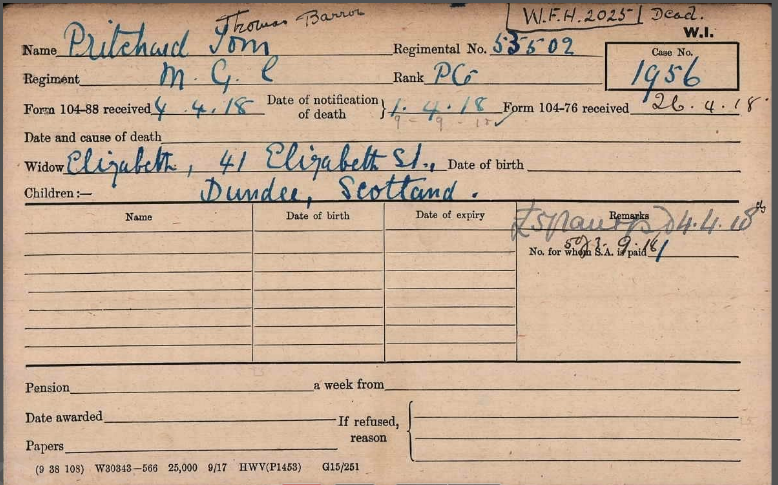 Thomas Barron W.F.H. 2025 Dead.
W.I.
Name Pritchard Tom Regimental No. 53502 Case No.
Regiment M. G. C Rank Pte 1956
Form 104-88 received 4 . 4 . 18 Date of notification of death } 1. 4. 18 Form 104-76 received 26. 4. 18
9 - 9 - 18
Date and cause of death
Widow Elizabeth, 41 Elizabeth St., Date of birth
Children:— Dundee, Scotland.
Name Date of birth Date of expiry Remarks
£5 4.4.18
No. for whom S.A. is paid 1
Pension a week from
Date awarded If refused, reason
Papers
(9 38 108) W30343—566 25,000 9/17 HWV(P1453) G15/251